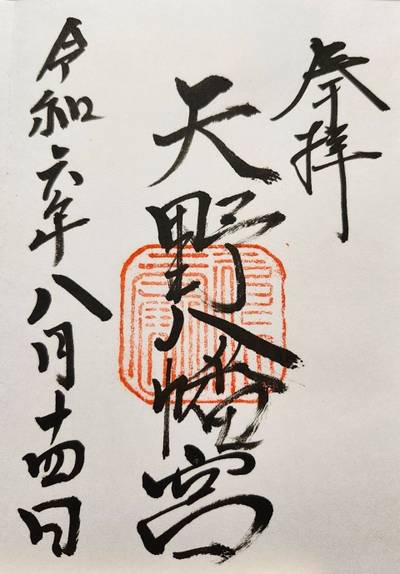 奉拝
天野八幡宮
令和六年八月十四日